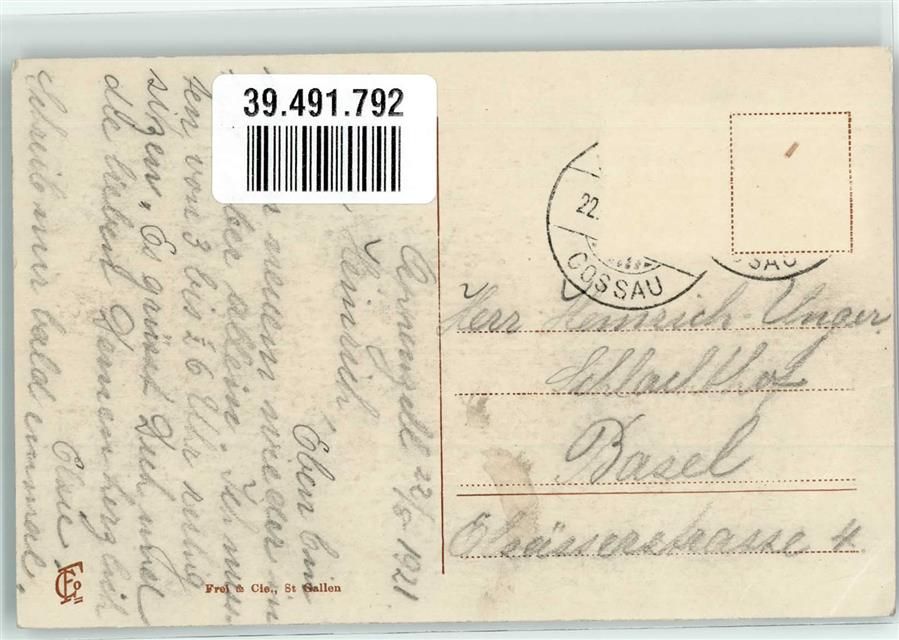 39.491.792
22.
GOSSAU
SSAU
Herr Heinrich Unger
Schlachthof
Basel
Elsässerstrasse 4.
22/5 1921
Heinrich
Eben bin
neuem wieder in
aber allein. Ich
ten von 3 bis ½6 Uhr ruhig
sitzen. Es grüsst Dich und
die lieben Deinen herzlich
Elsie
Schreib mir bald einmal.
Frei & Cie., St Gallen